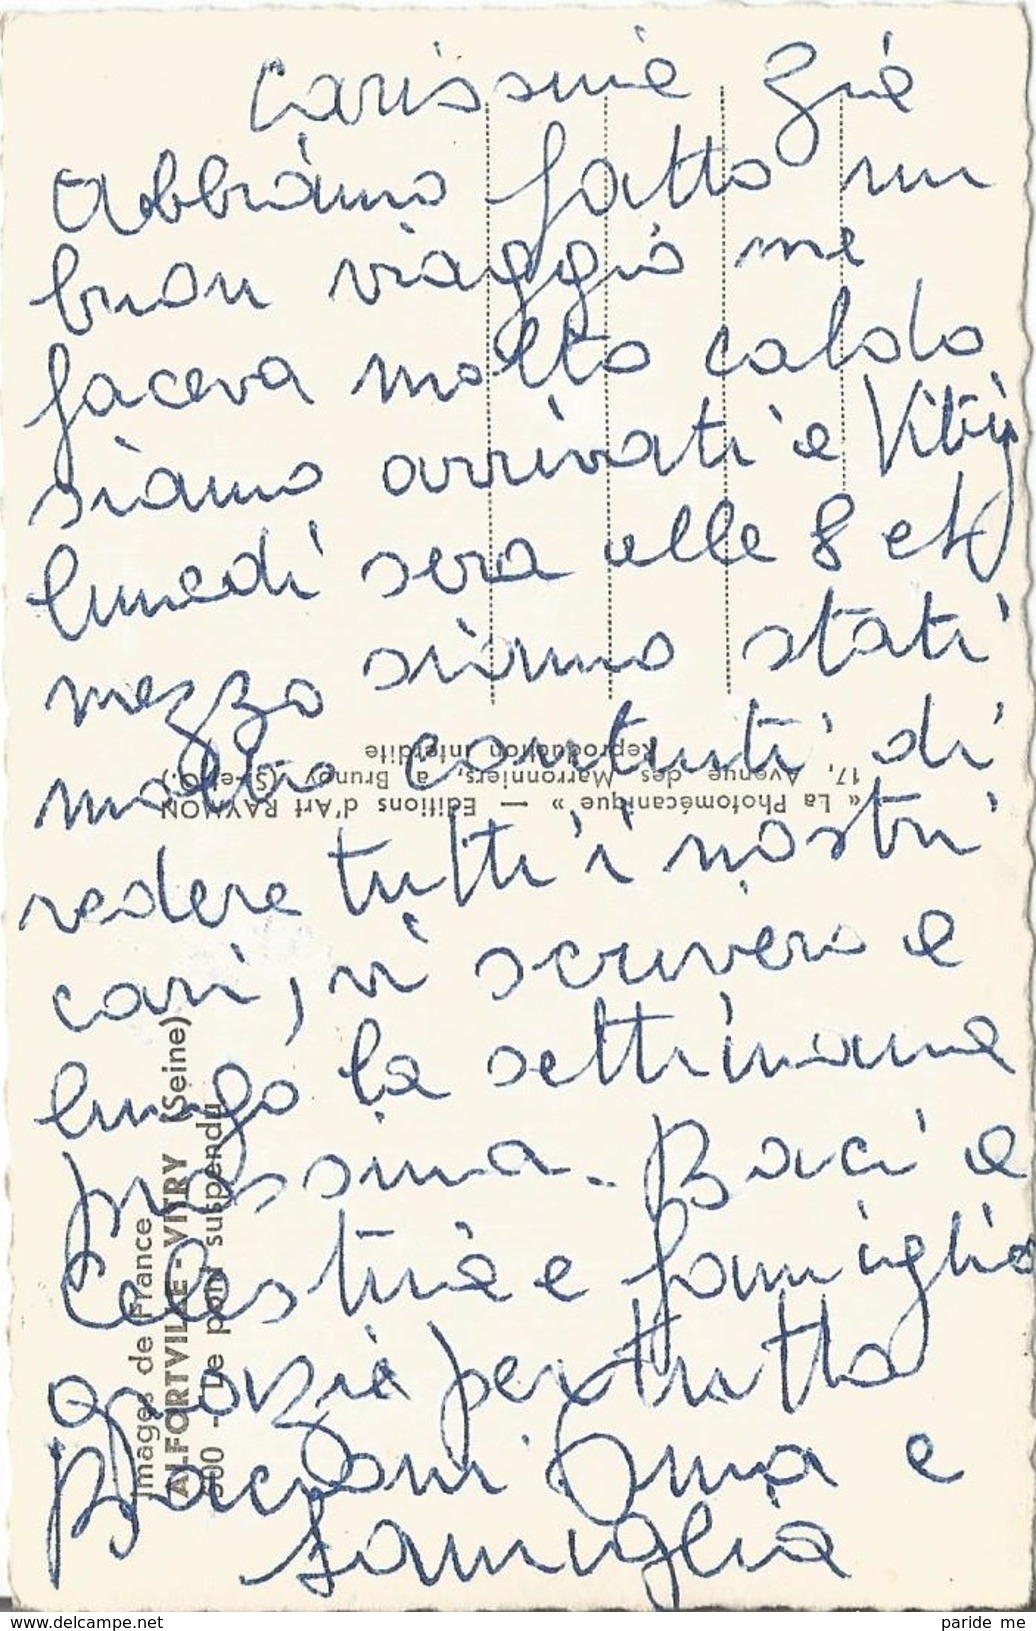 Carissime Zie
Abbiamo fatto un
buon viaggio ma
faceva molto caldo
siamo arrivati a Vitry
lunedi sera alle 8 et
mezzo siamo stati
molto contenti di
vedere tutti i nostri
cari, vi scrivero a
lungo la settimana
prossima. Baci a
Celestina e famiglia
grazie per tutto
Bacioni Irma e
famiglia
« La Photomécanique » — Editions d'Art RAYMON
17, Avenue des Marronniers, à Brunoy (S.-et-O.)
Reproduction interdite
Images de France
ALFORTVILLE - VITRY (Seine)
900 - Le pont suspendu
delcampe.net
paride me